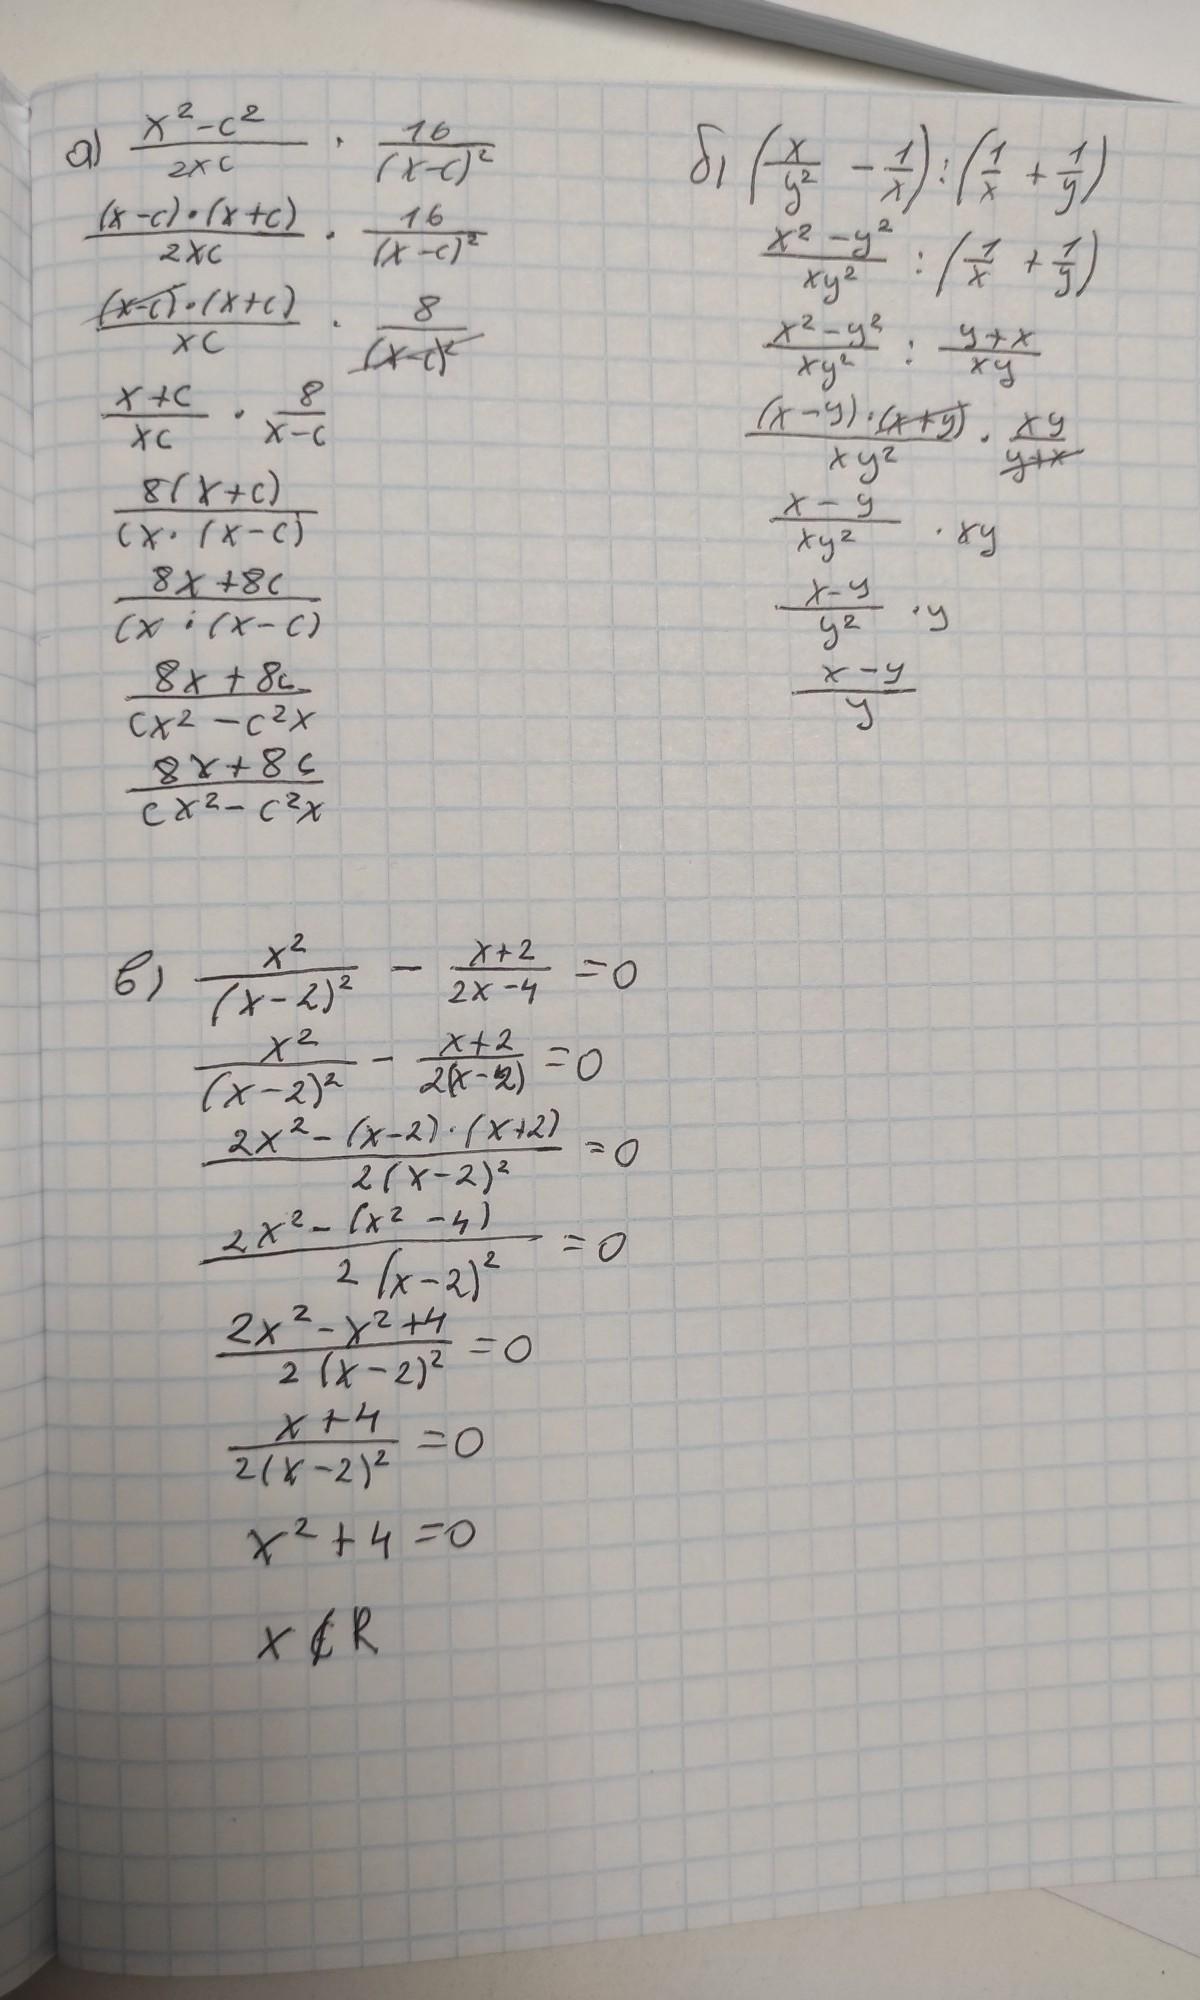 а) (x² - c²)/(2xc) · 16/(x-c)²
((x-c)·(x+c))/(2xc) · 16/(x-c)²
((x-c)·(x+c))/(xc) · 8/(x-c)²
(x+c)/(xc) · 8/(x-c)
8(x+c)/(cx·(x-c))
(8x+8c)/(cx·(x-c))
(8x+8c)/(cx² - c²x)
(8x+8c)/(cx² - c²x)
б) (x/y² - 1/x) : (1/x + 1/y)
(x² - y²)/(xy²) : (1/x + 1/y)
(x² - y²)/(xy²) : (y+x)/(xy)
((x-y)·(x+y))/(xy²) · xy/(y+x)
(x-y)/(xy²) · xy
(x-y)/y² · y
(x-y)/y
в) x²/(x-2)² - (x+2)/(2x-4) = 0
x²/(x-2)² - (x+2)/(2(x-2)) = 0
(2x² - (x-2)·(x+2))/(2(x-2)²) = 0
(2x² - (x² - 4))/(2(x-2)²) = 0
(2x² - x² + 4)/(2(x-2)²) = 0
(x+4)/(2(x-2)²) = 0
x² + 4 = 0
x ∉ R